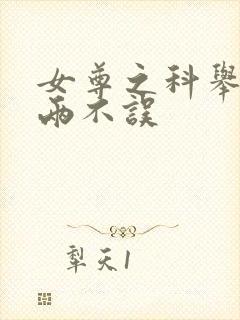 女尊之科舉
兩不誤
犁天1